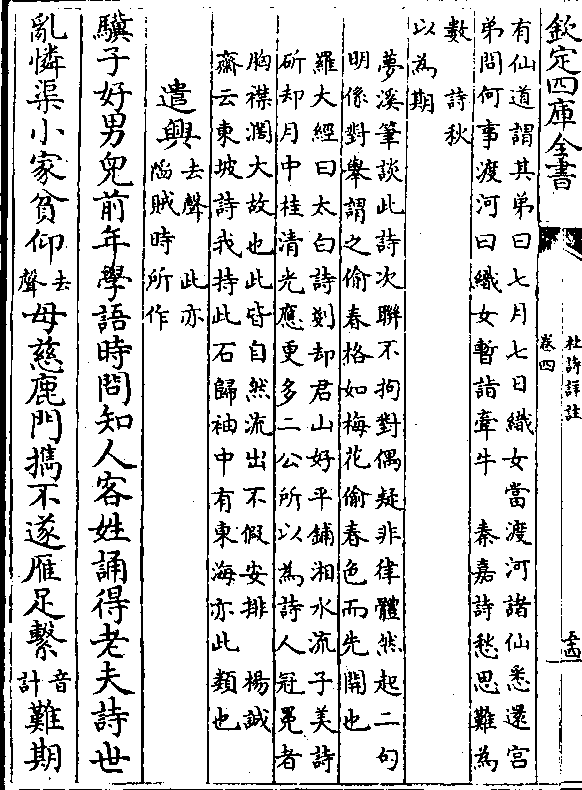 欽定四庫全書
杜詩詳註
卷四
有仙道謂其弟曰七月七日織女當渡河諸仙悉還宮
弟問何事渡河曰織女暫詣牽牛　秦嘉詩愁思難為
數　詩秋
以為期
夢溪筆談此詩次聯不拘對偶疑非律體然起二句
明係對舉謂之偷春格如梅花偷春色而先開也
羅大經曰太白詩剗却君山好平鋪湘水流子美詩
斫却月中桂清光應更多二公所以為詩人冠冕者
胸襟濶大故也此皆自然流出不假安排　楊誠
齋云東坡詩我持此石歸袖中有東海亦此類也
遣興去聲　此亦陷賊時所作
驥子好男兒前年學語時問知人客姓誦得老夫詩世
亂憐渠小家貧仰去聲母慈鹿門攜不遂雁足繫音計難期